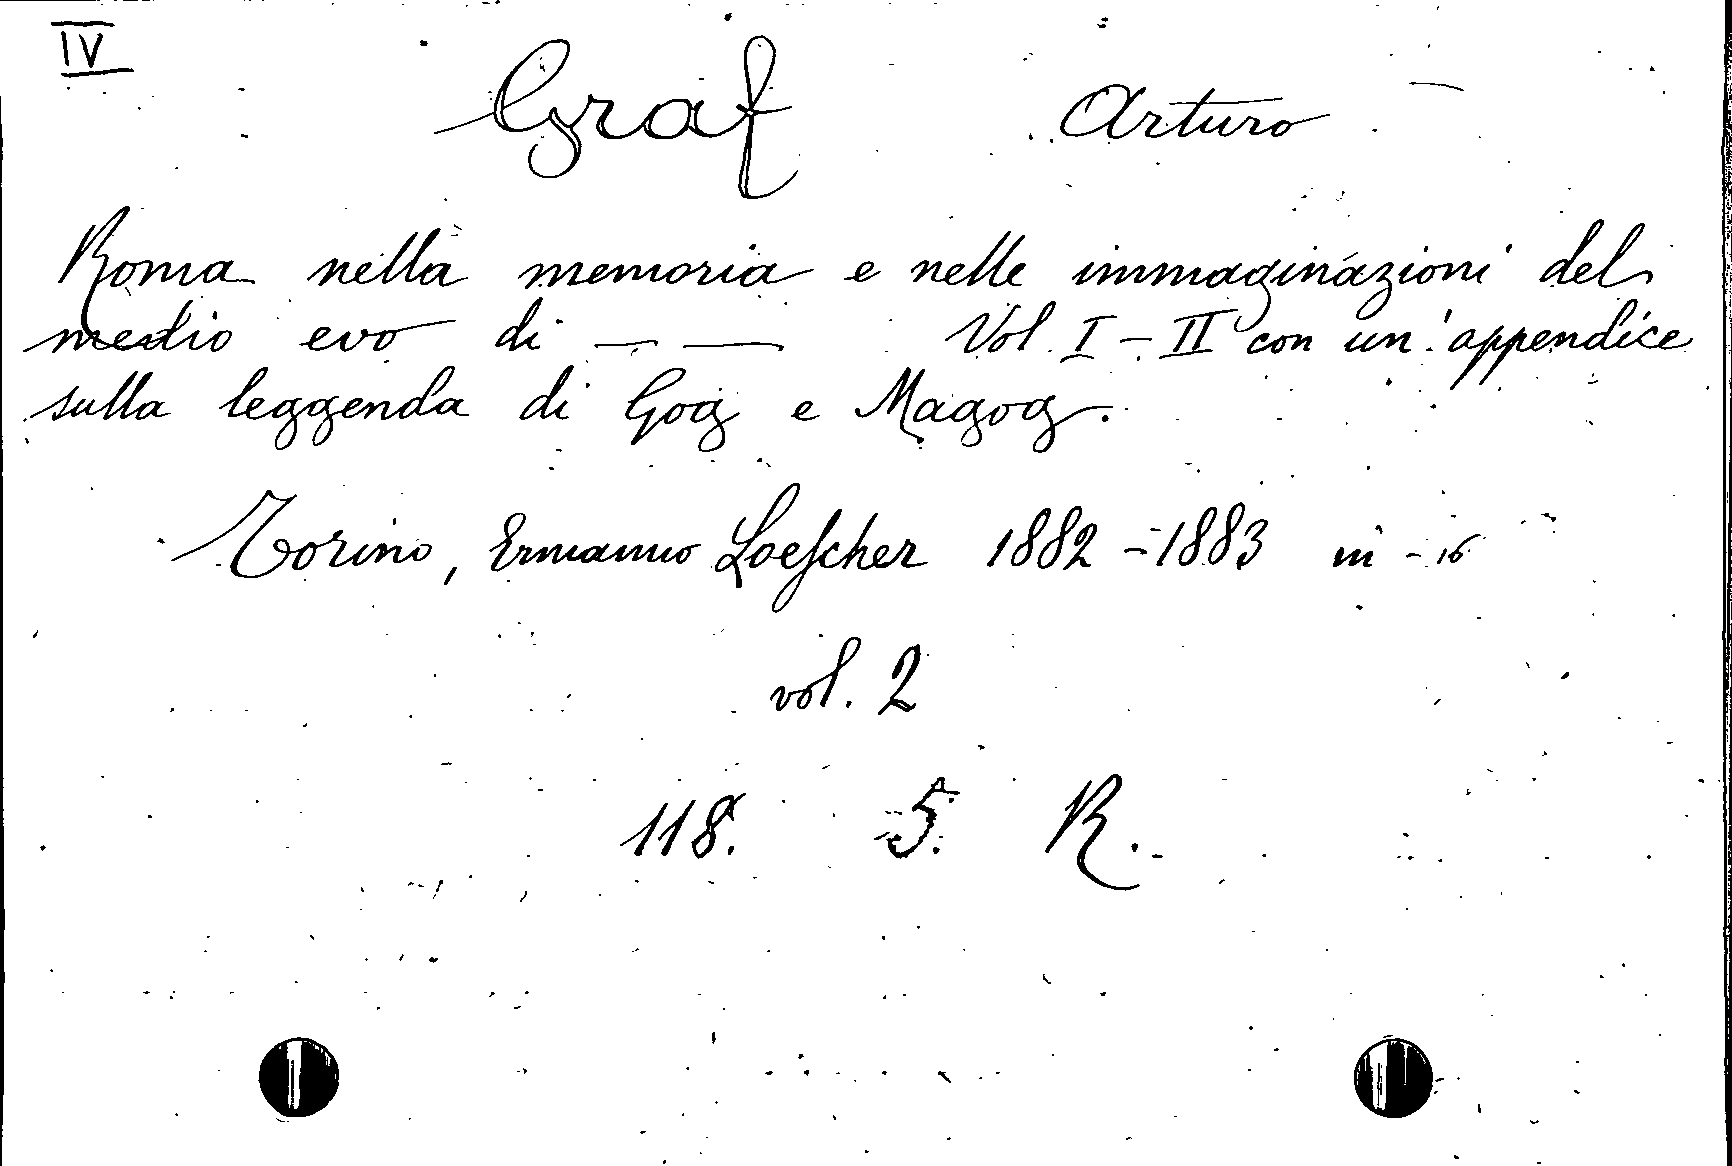 IV
Graf Arturo
Roma nella memoria e nelle immaginazioni del
medio evo di — — Vol. I - II con un' appendice
sulla leggenda di Gog e Magog.
Torino, Ermanno Loescher 1882 - 1883 in - 16
vol. 2
118. 5. R.